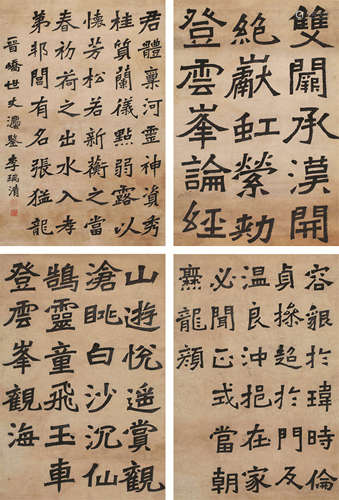 雙闕承漢開
絕巘虹縈劫
登雲峯論經
君體稟河靈神貞秀
桂質蘭儀點弱露以
懷芳松若新衡之當
春初荷之出水入孝
第邦閭有名張猛龍
晉嶠世丈灋鑒李瑞清
容貌於瑋時倫
貞操超於門及
溫良沖挹在家
必聞正式當朝
爨龍顏
山遊悅遙賞觀
滄眺白沙沉仙
鵠靈童飛玉車
登雲峯觀海